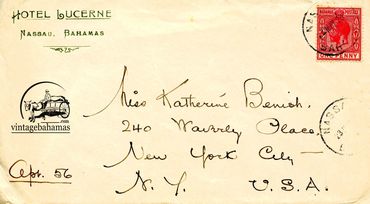 HOTEL LUCERNE
NASSAU, BAHAMAS
NASSA
BAH
ONE PENNY
Miss Katherine Benich.
240 Waverly Place
New York City
N.Y. U.S.A.
vintagebahamas
.com
NASSA
Apt. 56